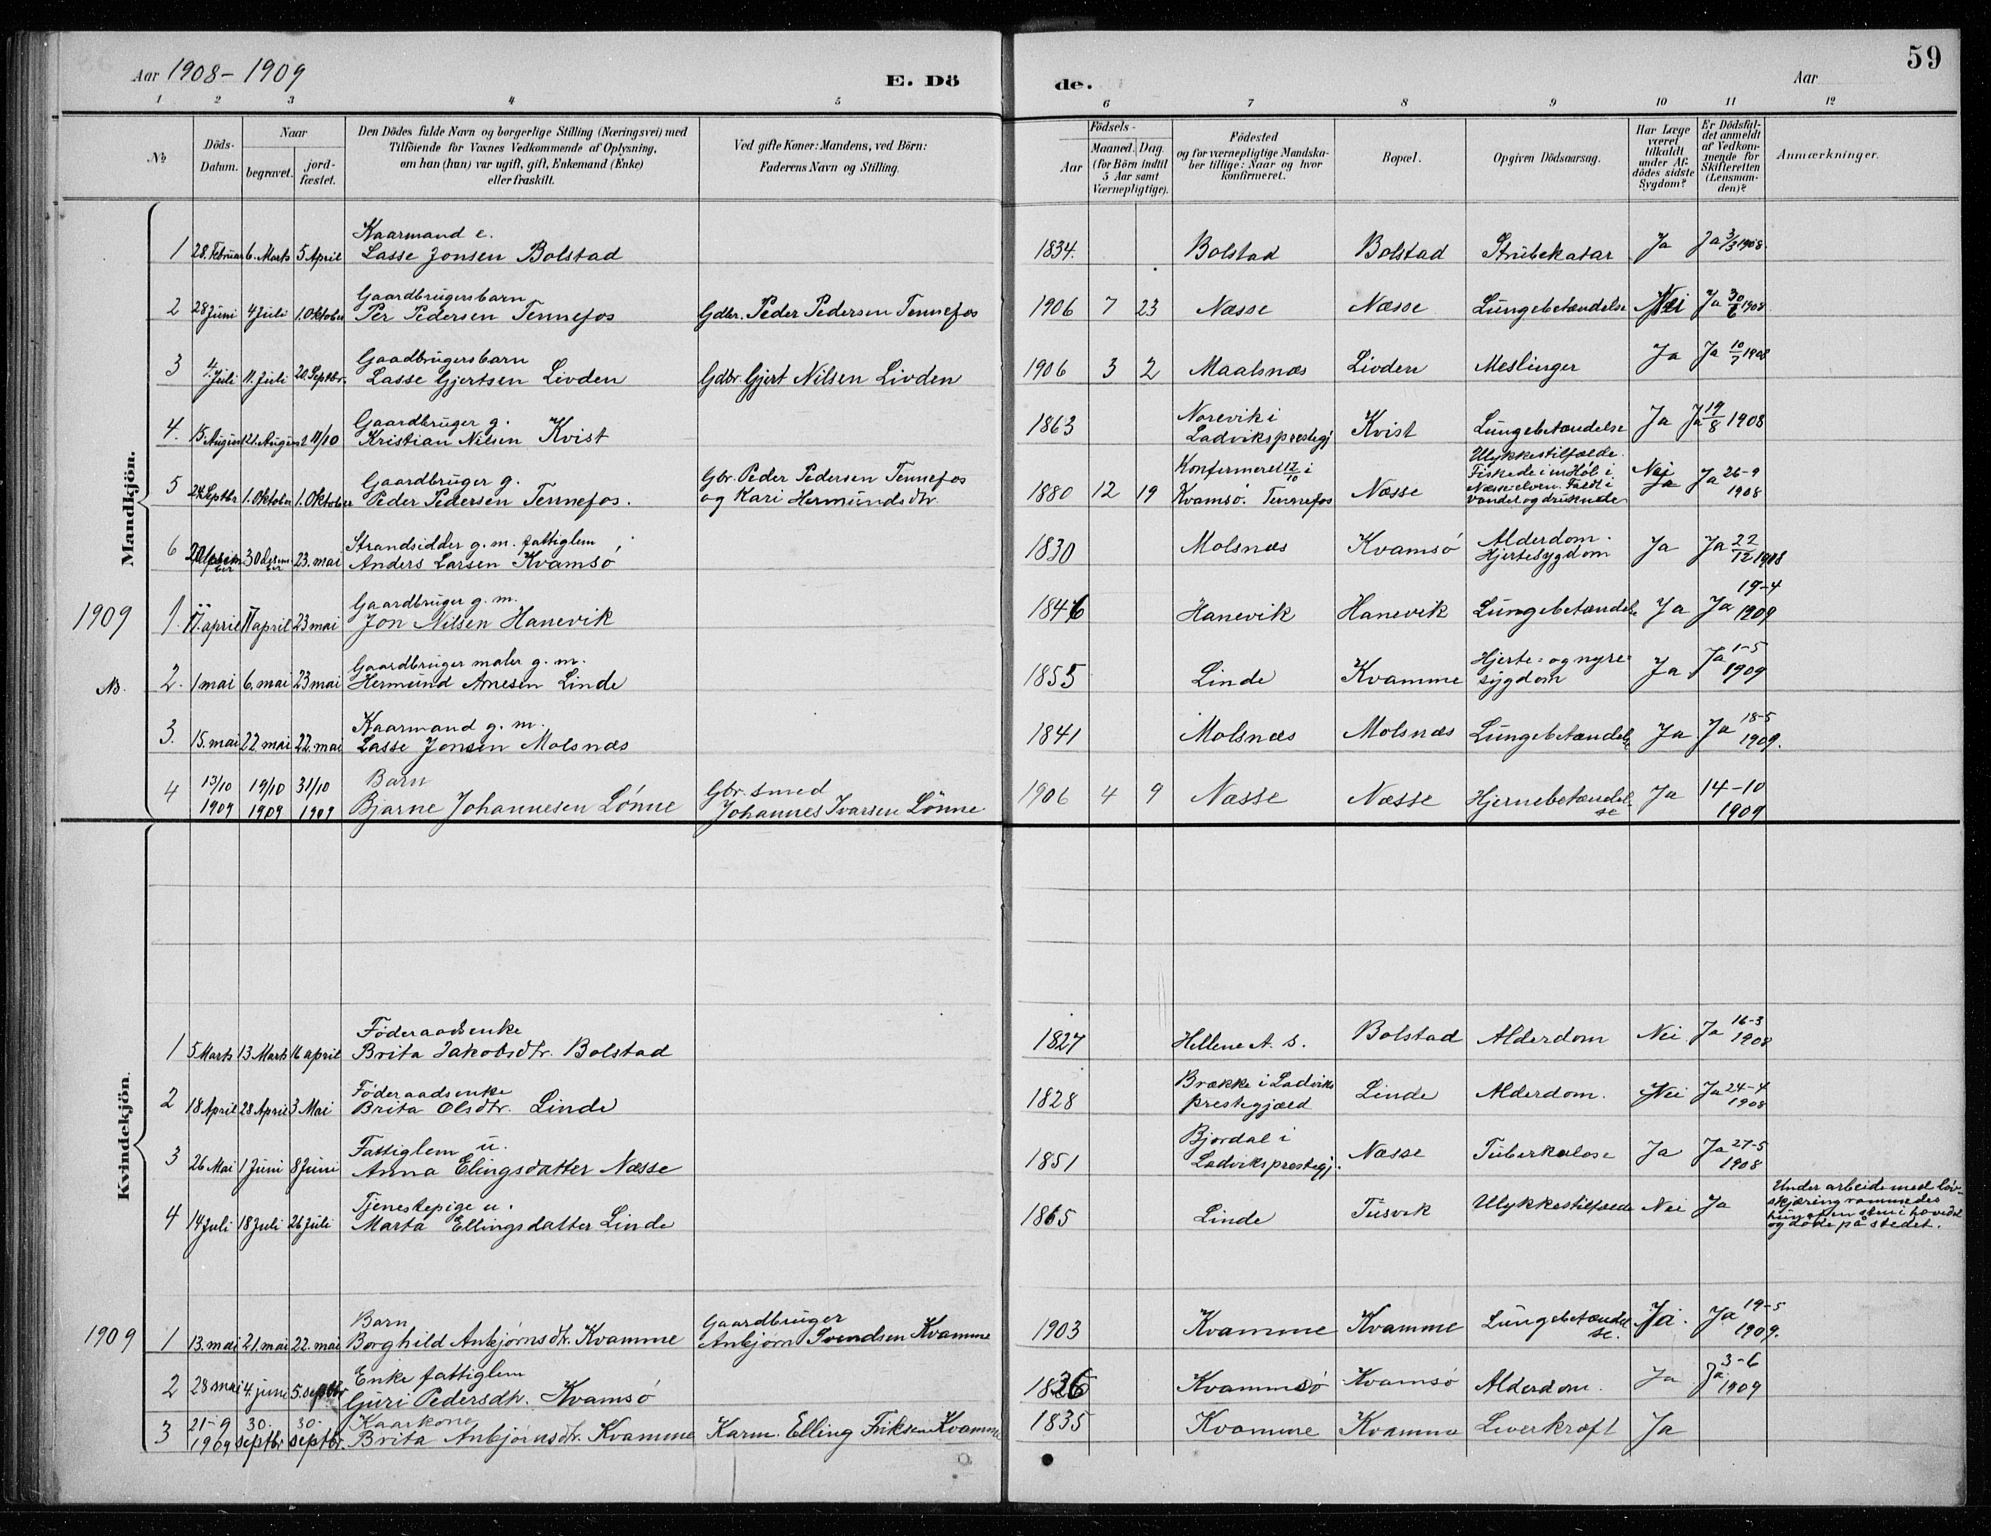 59
Aar 1908-1909
E. Dö
de.
Aar
1 2 3 4 5 6 7 8 9 10 11 12
№
Döds-
Datum.
Naar
begravet.
jord-
fæstet.
Den Dödes fulde Navn og borgerlige Stilling (Næringsvei) med
Tilföiende for Voxnes Vedkommende af Oplysning,
om han (hun) var ugift, gift, Enkemand (Enke)
eller fraskilt.
Ved gifte Koner: Mandens, ved Börn:
Faderens Navn og Stilling.
Födsels-
Aar
Maaned. Dag.
(for Börn indtil
5 Aar samt
Værnepligtige).
Födested
og for værnepligtige Mandska-
ber tillige: Naar og hvor
konfirmeret.
Bopæl.
Opgiven Dödsaarsag.
Har Læge
været
tilkaldt
under Af-
dödes sidste
Sygdom?
Er Dödsfal-
det anmeldt
af Vedkom-
mende for
Skifteretten
(Lensman-
den)?
Anmærkninger.
Mandkjön.
Kaarmand e.
1 28. Februar 6. Marts 5 April Lasse Jonsen Bolstad 1834. Bolstad Bolstad Strubekatar Ja Ja 3/3 1908
Gaardbrugersbarn
2 28 Juni 4 Juli 1. Oktober Per Pedersen Tennefos Gdbr. Peder Pedersen Tennefos 1906 7 23 Næsse Næsse Lungebetændelse Nei Ja 30/6 1908
Gaadbrugersbarn
3 4. Juli 11. Juli 20. Septbr. Lasse Gjertsen Livden Gdbr. Gjert Nilsen Livden 1906 3 2 Maalsnæs Livden Meslinger Ja Ja 10/7 1908
Gaardbruger g. Norevik i
4. 15 August 21. August 11/10 Kristian Nilsen Kvist 1863 Ladviks prestegj Kvist Lungebetændelse Ja Ja 19/8 1908
Ulykkestilfælde.
Gaardbruger g. Gbr. Peder Pedersen Tennefos Konfirmeret 12/10 i Fiskede i en Høl i Nei
5 24 Septbr 1. Oktober 1. Oktober Peder Pedersen Tennefos. og Kari Hermundsdtr. 1880 12 19 Kvamsö. Tennefos Næsse Næsse elven. Faldt i Ja Ja 26-9
Vandet og druknede 1908
Strandsidder g. m. fattiglem Alderdom.
6 30 23. mai Anders Larsen Kvamsö 1830 Molsnæs Kvamsö Hjertesygdom Ja Ja 22/12 1908
1909
Gaardbruger g. m. 19-4
1. 11. april 17 april 23 mai Jon Nilsen Hanevik 1846 Hanevik Hanevik Lungebetændelse Ja Ja 1909
Gaardbruger maler g. m. Hjerte- og nyre- 1-5
2. 1 mai 6. mai 23 mai Hermund Arnesen Linde 1855 Linde Kvamme sygdom Ja Ja 1909
Kaarmand g. m. 18-5
3. 15. mai 22 mai 22. mai Lasse Jonsen Molsnæs 1841 Molsnæs Molsnæs Lungebetændelse Ja Ja 1909.
13/10 19/10 31/10 Barn Gbr. smed
4 1909 1909 1909 Bjarne Johannesen Lönne Johannes Ivarsen Lönne 1906 4 9 Næsse Næsse Hjernebetændelse Ja 14-10
1909
Kvindekjön.
Føderaadsenke
1 5 Marts 13 Marts 16 april Brita Jakobsdtr. Bolstad 1827 Hellene A. S. Bolstad Alderdom Nei Ja 16-3
1908
Føderaadsenke Brække i Ladviks
2 18 April 28 April 3 Mai Brita Olsdtr. Linde 1828 prestegjæld Linde Alderdom. Nei Ja 24-4
1908
Fattiglem u. Bjordal i
3 26 Mai 1 Juni 8 Juni Anna Elingsdatter Næsse 1851 Ladviks prestegj. Næsse Tuberkulose Ja Ja 27-5
1908
Tjenestepige u.
4 14 Juli 18 Juli 26 Juli Marta Ellingsdatter Linde 1865 Linde Tusvik Ulykkestilfælde Nei Ja
Under arbeide med löv-
skjæring rammedes
hun af en sten i hovedet
og døde på stedet.
1909
Barn Gaardbruger 19-5
1 13. mai 21. mai 22. mai Borghild Anbjørnsdtr. Kvamme Anbjørn Kvamme 1903 Kvamme Kvamme Lungebetændelse. Ja. Ja 1909.
Enke fattiglem 3-6
2 28 mai 4. june 5. septbr Guri Pedersdtr. Kvamsö 1836 Kvamsö Kvamsö Alderdom. Ja Ja 1909
21-9 30. 30. Kaarkone
3 1909 septbr septbr. Brita Anbjornsdtr. Kvamme Karm. Elling Kvamme 1835 Kvamme Kvamme Leverkræft Ja